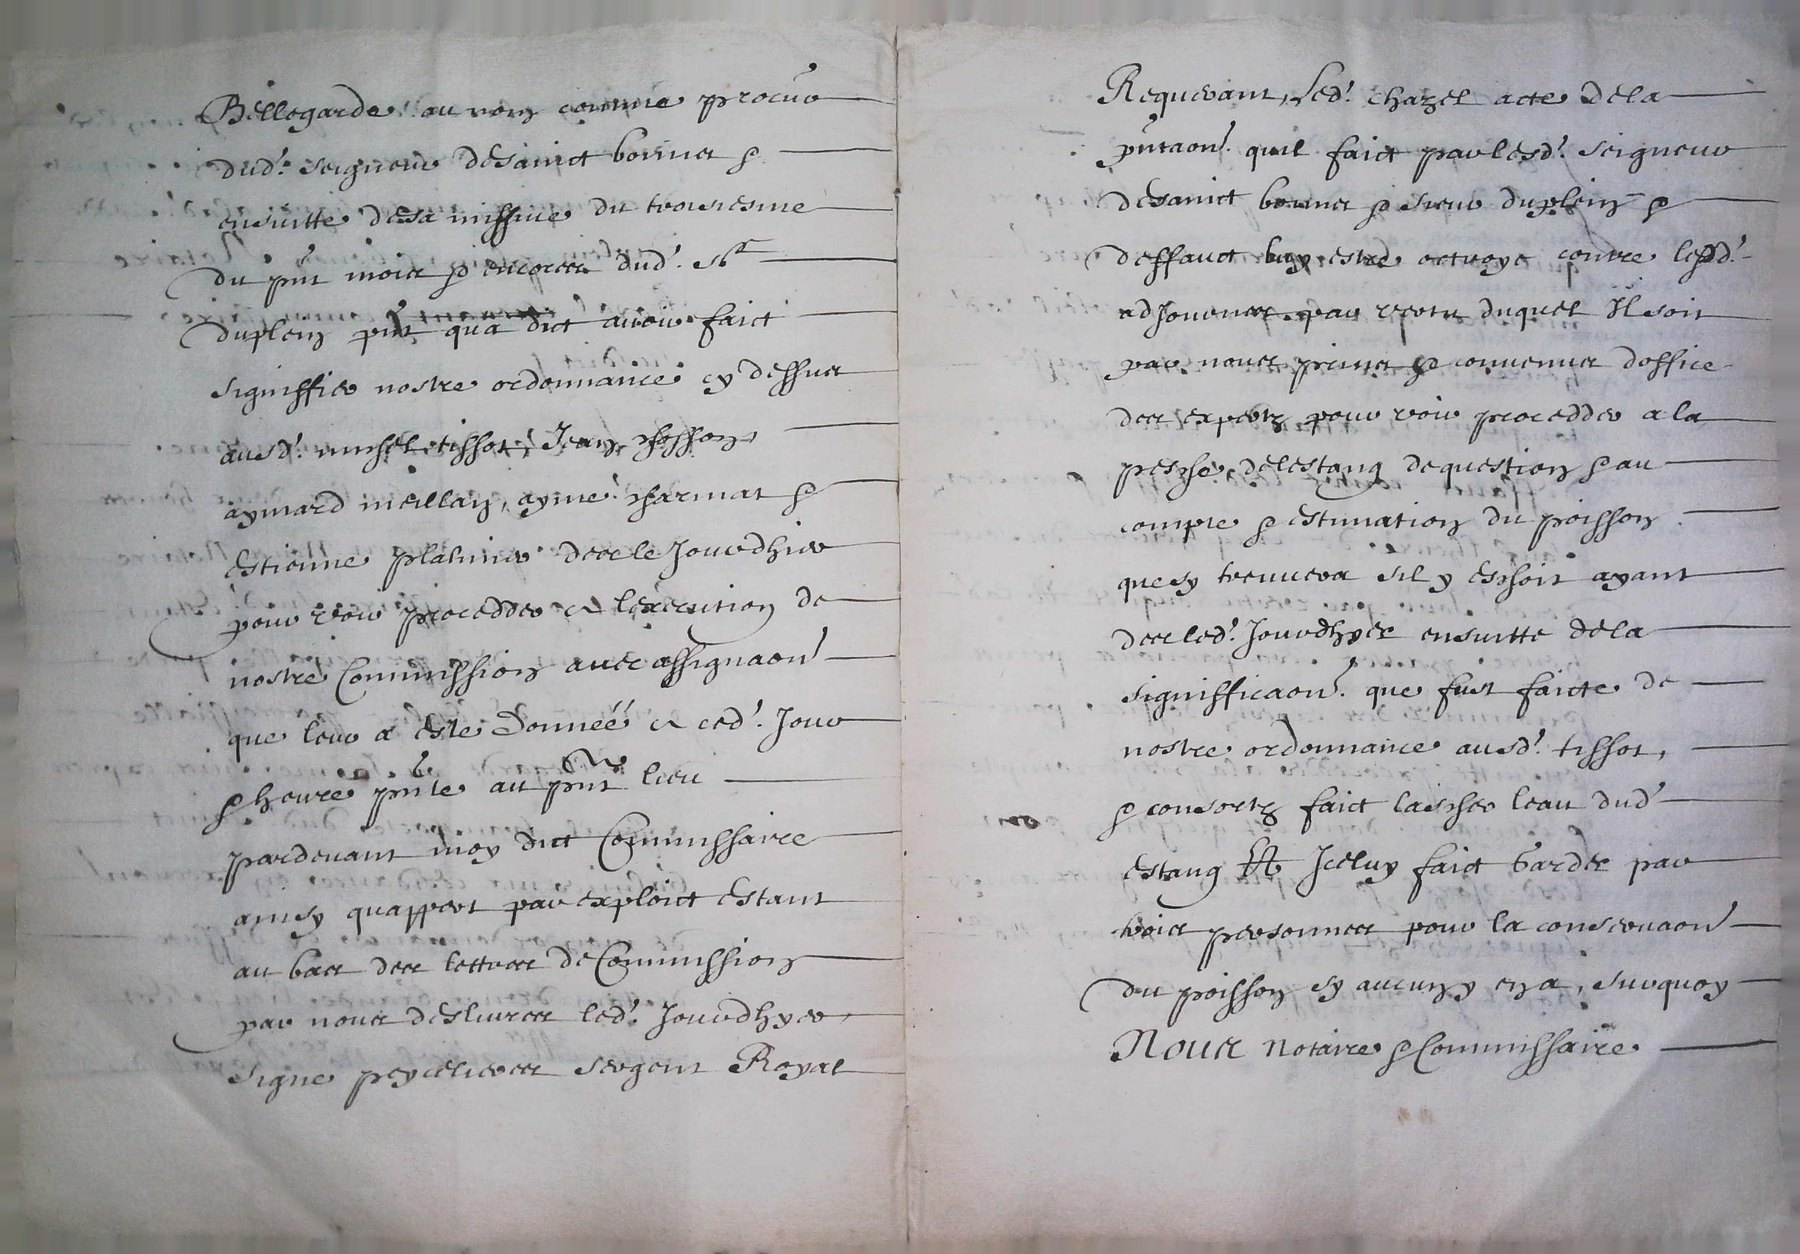 Bellegarde au nom comme procur
dud.t seigneur de sainct bonnet &
ensuitte de sa missive du troiziesme
du pnt mois & encores dud.t Sr
duplein pnt qua dict avoir faict
signiffier nostre ordonnance cy dessus
ausd.t michel tissot, Jean chosson,
aymard meillan, aymé charmat &
estienne platinier des le Jourdhier
pour voir procedder a lexecution de
nostre Commission avec assignaon
que leur a este donneé a ced.t Jour
& heure pnte au pnt lieu
pardevant moy dict Commissaire
ainsy quappert par exploict estant
au bas des lettres de Commission
par nous deslivres led.t Jourdhyer,
signe peycelieres sergent Royal
Requerant, led.t chazel acte de la
pntaon quil faict par lesd.t seigneur
de sainct bonnet & sieur duplein &
deffauct luy estre octroye contre lesd.t
adjournes par vertu duquel Il soit
par nous prins & convenus doffice
des expertz pour voir procedder a la
pesche de lestang de question & au
compte & estimation du poisson
que sy treuvera sil y eschoit ayant
des led.t Jourdhyer ensuitte de la
signifficaon que fust faicte de
nostre ordonnance ausd.t tissot,
& consortz faict lascher leau dud.t
estang Et Iceluy faict garder par
trois personnes pour la conservaon
du poisson sy aucun y en a, surquoy
Nous Notaire & Commissaire